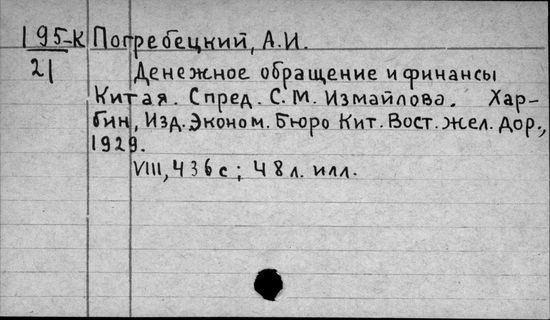 195-К Погребецкий, А.И.
21
Денежное обращение и финансы
Китая. Спред. С. М. Измайлова. Хар-
бин, Изд. Эконом. Бюро Кит. Вост. жел. дор.,
1929.
VIII, 436 с; 48 л. илл.